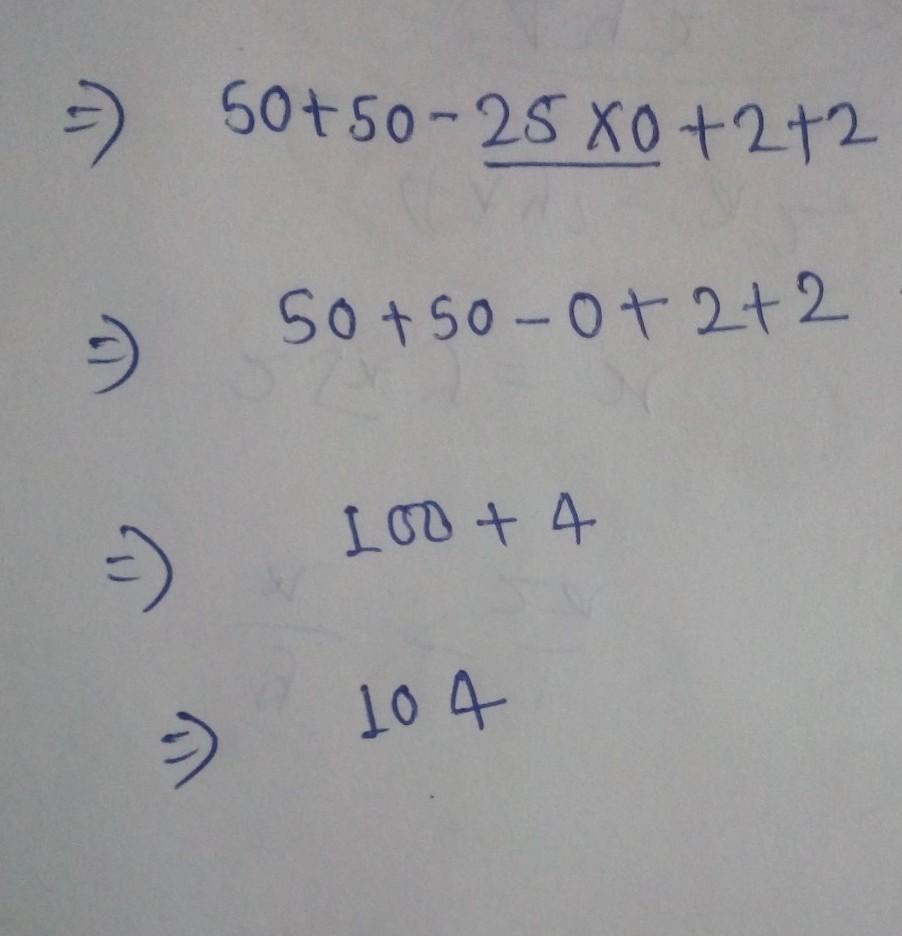 ⇒ 50+50-25×0+2+2
⇒ 50+50-0+2+2
⇒ 100+4
⇒ 104